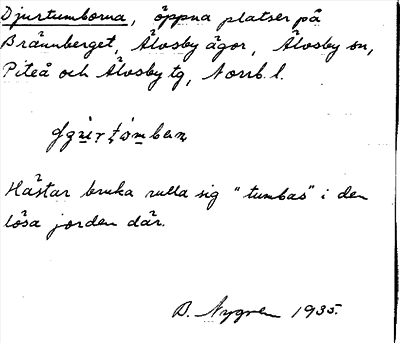 Djurtumborna, öppna platser på
Brännberget, Älvsby ägor, Älvsby sn,
Piteå och Älvsby tg, Norrb. l.
Hästar bruka rulla sig "tumbas" i den
lösa jorden där.
B. Nygren 1935.